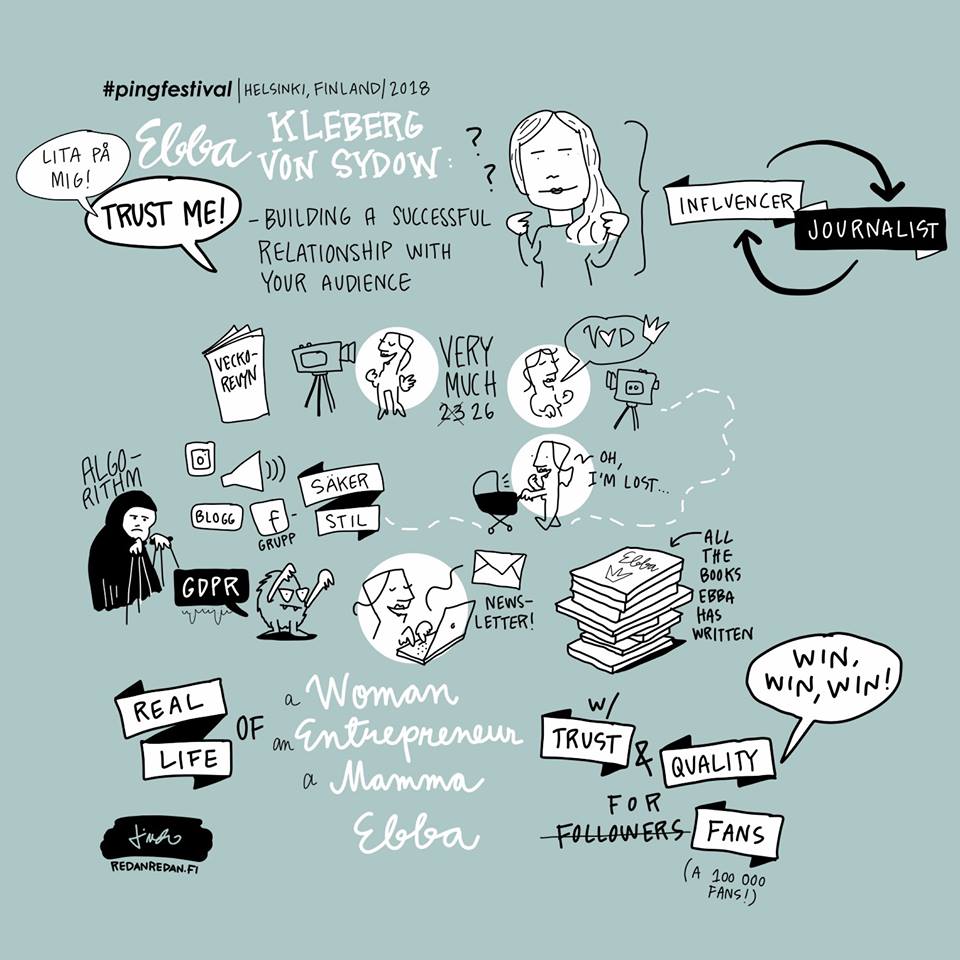 #pingfestival | HELSINKI, FINLAND / 2018
Ebba KLEBERG
VON SYDOW:
LITA PÅ
MIG!
TRUST ME!
- BUILDING A SUCCESSFUL
RELATIONSHIP WITH
YOUR AUDIENCE
?
?
INFLUENCER
JOURNALIST
VECKO-
REVYN
VERY
MUCH
23 26
V♥D
ALGO-
RITHM
BLOGG
f -
GRUPP
SÄKER
STIL
OH,
I'M LOST...
GDPR
NEWS-
LETTER!
Ebba
ALL
THE
BOOKS
EBBA
HAS
WRITTEN
REAL
LIFE
OF
a Woman
an Entrepreneur
a Mamma
Ebba
W/
TRUST
&
QUALITY
WIN,
WIN, WIN!
FOR
FOLLOWERS FANS
(A 100 000
FANS!)
REDANREDAN.FI